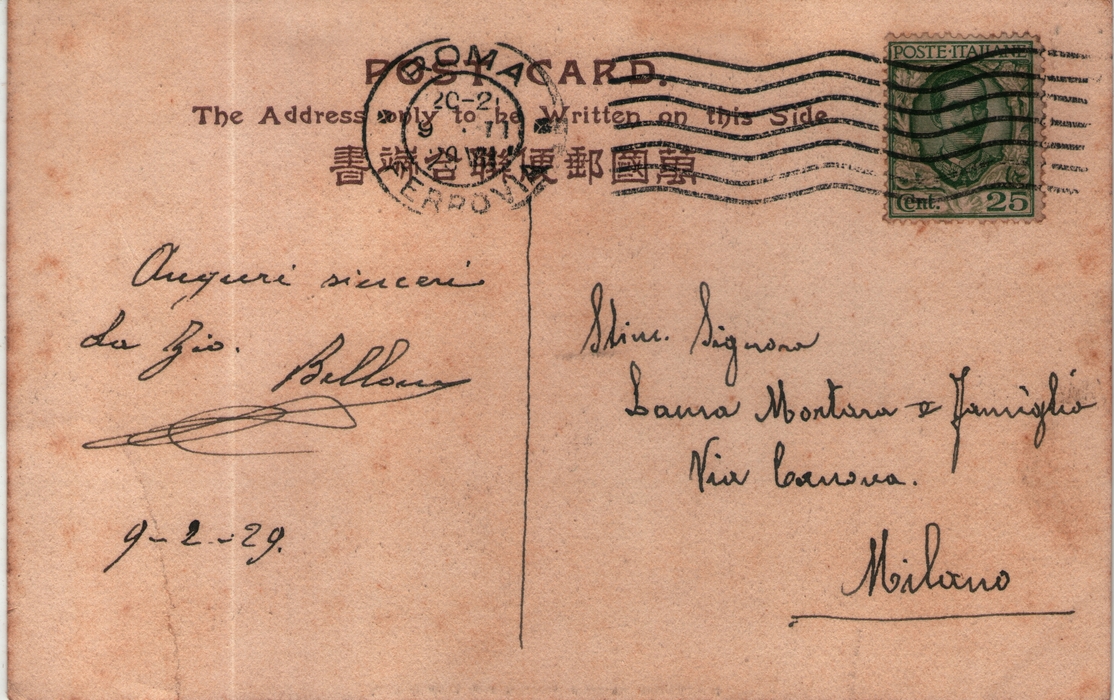 POST CARD.
The Address only to be Written on this Side
萬國郵便聯合端書
ROMA
20-21
FERROVIA
POSTE·ITALIANE
Cent. 25
Auguri sinceri
Lo Zio.
9-2-29.
Stim. Signora
Laura Mortara e Famiglia
Via Canova.
Milano